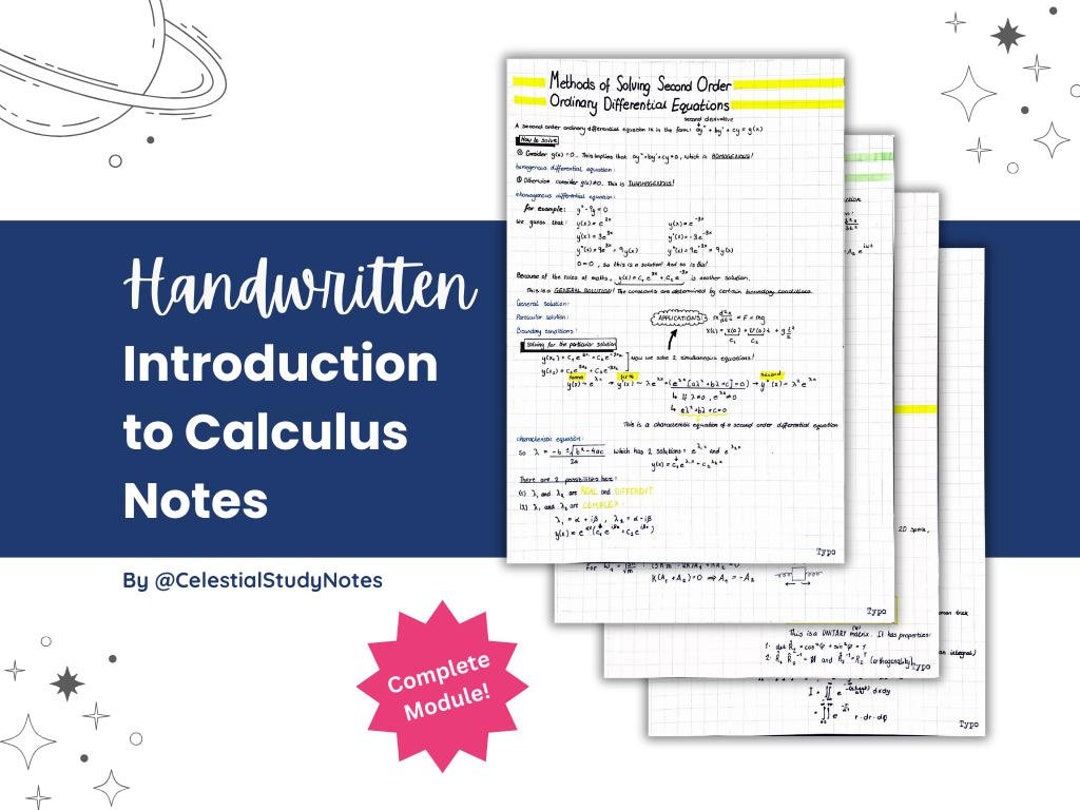 Handwritten
Introduction
to Calculus
Notes
By @CelestialStudyNotes
Complete
Module!
Methods of Solving Second Order
Ordinary Differential Equations
second derivative
A second order ordinary differential equation is in the form: ay'' + by' + cy = g(x)
How to solve
① Consider g(x) = 0. This implies that ay'' + by' + cy = 0, which is HOMOGENOUS!
homogenous differential equation:
② Otherwise consider g(x) ≠ 0. This is INHOMOGENOUS!
inhomogenous differential equation:
for example: y'' - 9y = 0
We guess that: y(x) = e^3x y(x) = e^-3x
y'(x) = 3e^3x y'(x) = -3e^-3x
y''(x) = 9e^3x = 9y(x) y''(x) = 9e^-3x = 9y(x)
0 = 0, so this is a solution! And so is this!
Because of the rules of maths, y(x) = c₁e^3x + c₂e^-3x is another solution.
This is a GENERAL SOLUTION! The constants are determined by certain boundary conditions.
General solution:
Particular solution:
Boundary conditions:
APPLICATIONS! = F = mg
Solving for the particular solution
Now we solve 2 simultaneous equations!
name first second
y(x) = e^λx → y'(x) = λe^λx → y''(x) = λ²e^λx
↳ if λ≠0, e^λx ≠ 0
↳ aλ² + bλ + c = 0
This is a characteristic equation of a second order differential equation
characteristic equation:
so λ = -b ± √b² - 4ac / 2a which has 2 solutions = e^λ₁x and e^λ₂x
y(x) = c₁e^λ₁x + c₂e^λ₂x
There are 2 possibilities here:
(1) λ₁ and λ₂ are REAL and DIFFERENT
(2) λ₁ and λ₂ are COMPLEX
λ₁ = α + iβ, λ₂ = α - iβ
Typo
K(A₁ + A₂) = 0 ⇒ A₁ = -A₂
Typo
This is a UNITARY matrix. It has properties:
Typo
r · dr · dφ
Typo